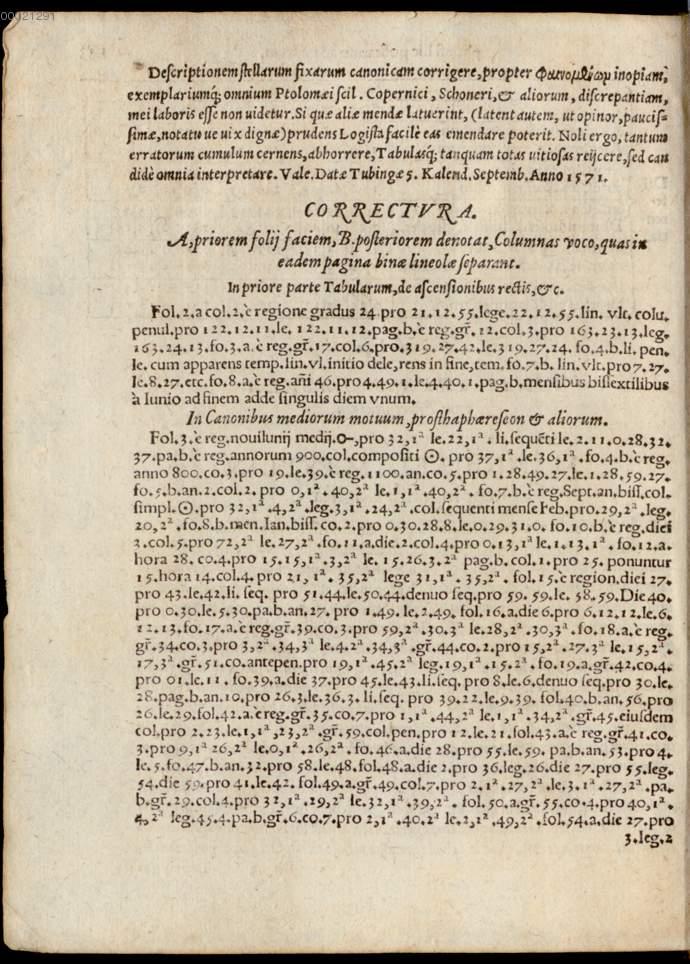 00021291
Descriptionem stellarum fixarum canonicam corrigere, propter inopiam,
exemplariumq́; omnium Ptolomæi scil. Copernici, Schoneri, & aliorum, discrepantiam,
mei laboris esse non uidetur. Si quæ aliæ mendæ latuerint, (latent autem, ut opinor, paucis=
simæ, notatu ue uix dignæ) prudens Logista facilè eas emendare poterit. Noli ergo, tantum
erratorum cumulum cernens, abhorrere, Tabulasq́; tanquam totas uitiosas reijcere, sed can
didè omnia interpretare. Vale. Datæ Tubingæ 5. Kalend. Septemb. Anno 1571.
CORRECTVRA.
A, priorem folij faciem, B. posteriorem denotat, Columnas voco, quas in
eadem pagina binæ lineolæ separant.
In priore parte Tabularum, de ascensionibus rectis, &c.
Fol. 2. a col. 2. è regione gradus 24. pro 21.12.55. lege. 22.12.55. lin. vlt. colu.
penul. pro 122.12.11. le. 122.11.12. pag. b. è reg. gr̃. 12. col. 3. pro 163.23.13. leg.
163.24.13. fo. 3. a. è reg. gr̃. 17. col. 6. pro. 319.27.42. le. 319.27.24. fo. 4. b. li. pen.
le. cum apparens temp. lin. vl. initio dele, rens in fine, tem. fo. 7. b. lin. vlt. pro 7.27.
le. 8.27. etc. fo. 8. a. è reg. añi 46. pro 4.49.1. le. 4.40.1. pag. b. mensibus bissextilibus
à Iunio ad finem adde singulis diem vnum.
In Canonibus mediorum motuum, prosthaphæreseon & aliorum.
Fol. 3. è reg. nouilunij medij. pro 32, 1ª le. 22, 1ª. li. sequẽti le. 2.11.0.28.32.
37. pa. b. è reg. annorum 900. col. compositi ☉. pro 37, 1ª. le. 36, 1ª. fo. 4. b. è reg.
anno 800. co. 3. pro 19. le. 39. è reg. 1100. an. co. 5. pro 1.28.49.27. le. 1.28.59.27.
fo. 5. b. an. 2. col. 2. pro 0, 1ª. 40, 2ª le. 1, 1ª. 40, 2ª. fo. 7. b. è reg. Sept. an. biss. col.
simpl. ☉. pro 32, 1ª. 4, 2ª. leg. 3, 1ª. 24, 2ª. col. sequenti mense Feb. pro. 29, 2ª. leg.
20, 2ª. fo. 8. b. men. Ian. biss. co. 2. pro 0.30.28.8. le. 0.29.31.0. fo. 10. b. è reg. diei
2. col. 5. pro 72, 2ª le. 27, 2ª. fo. 11. a. die. 2. col. 4. pro 0.13, 1ª le. 1.13. 1ª. fo. 12. a.
hora 28. co. 4. pro 15.15, 1ª. 3, 2ª le. 15.26.3.2ª pag. b. col. 1. pro 25. ponuntur
15. hora 14. col. 4. pro 21, 1ª. 35, 2ª lege 31, 1ª. 35, 2ª. fol. 15. è region. diei 27.
pro 43. le. 42. li. seq. pro 51.44. le. 50.44. denuo seq. pro 59.59. le. 58.59. Die 40.
pro 0.30. le. 5.30. pa. b. an. 27. pro 1.49. le. 2.49. fol. 16. a. die 6. pro 6.12.12. le. 6.
12.13. fo. 17. a. è reg. gr̃. 39. co. 3. pro 59, 2ª. 30.3ª le. 28, 2ª. 30, 3ª. fo. 18. a. è reg.
gr̃. 34. co. 3. pro 3, 2ª. 34, 3ª le. 4.2ª. 34, 3ª. gr̃. 44. co. 2. pro 15, 2ª. 27.3ª le. 15, 2ª.
17, 3ª. gr̃. 51. co. antepen. pro 19, 1ª. 45.2ª leg. 19, 1ª. 15.2ª. fo. 19. a. gr̃. 42. co. 4.
pro 01. le. 11. fo. 39. a. die 37. pro 45. le. 43. li. seq. pro 8. le. 6. denuo seq. pro 30. le.
28. pag. b. an. 10. pro 26.3. le. 36.3. li. seq. pro 39.22. le. 9.39. fol. 40. b. an. 56. pro
26. le. 29. fol. 42. a. è reg. gr̃. 35. co. 7. pro 1, 1ª. 44, 2ª le. 1, 1ª. 34, 2ª. gr̃. 45. eiusdem
col. pro 2.23. le. 1, 1ª, 23, 2ª. gr̃. 59. col. pen. pro 12. le. 21. fol. 43. a. è reg. gr̃. 41. co.
3. pro 9, 1ª 26, 2ª le. 0, 1ª. 26, 2ª. fo. 46. a. die 28. pro 55. le. 59. pa. b. an. 53. pro 4.
le. 5. fo. 47. b. an. 32. pro 58. le. 48. fol. 48. a. die 2. pro 36. leg. 26. die 27. pro 55. leg.
54. die 59. pro 41. le. 42. fol. 49. a. gr̃. 49. col. 7. pro 2.1ª. 27, 2ª. le. 3.1ª. 27, 2ª. pa.
b. gr̃. 29. col. 4. pro 32, 1ª. 29, 2ª le. 32, 1ª. 39, 2ª. fol. 50. a. gr̃. 55. co. 4. pro 40, 1ª.
4, 2ª leg. 45.4. pa. b. gr̃. 6. co. 7. pro 2, 1ª. 40.2ª le. 2, 1ª. 49, 2ª. fol. 54. a. die 27. pro
3. leg. 2